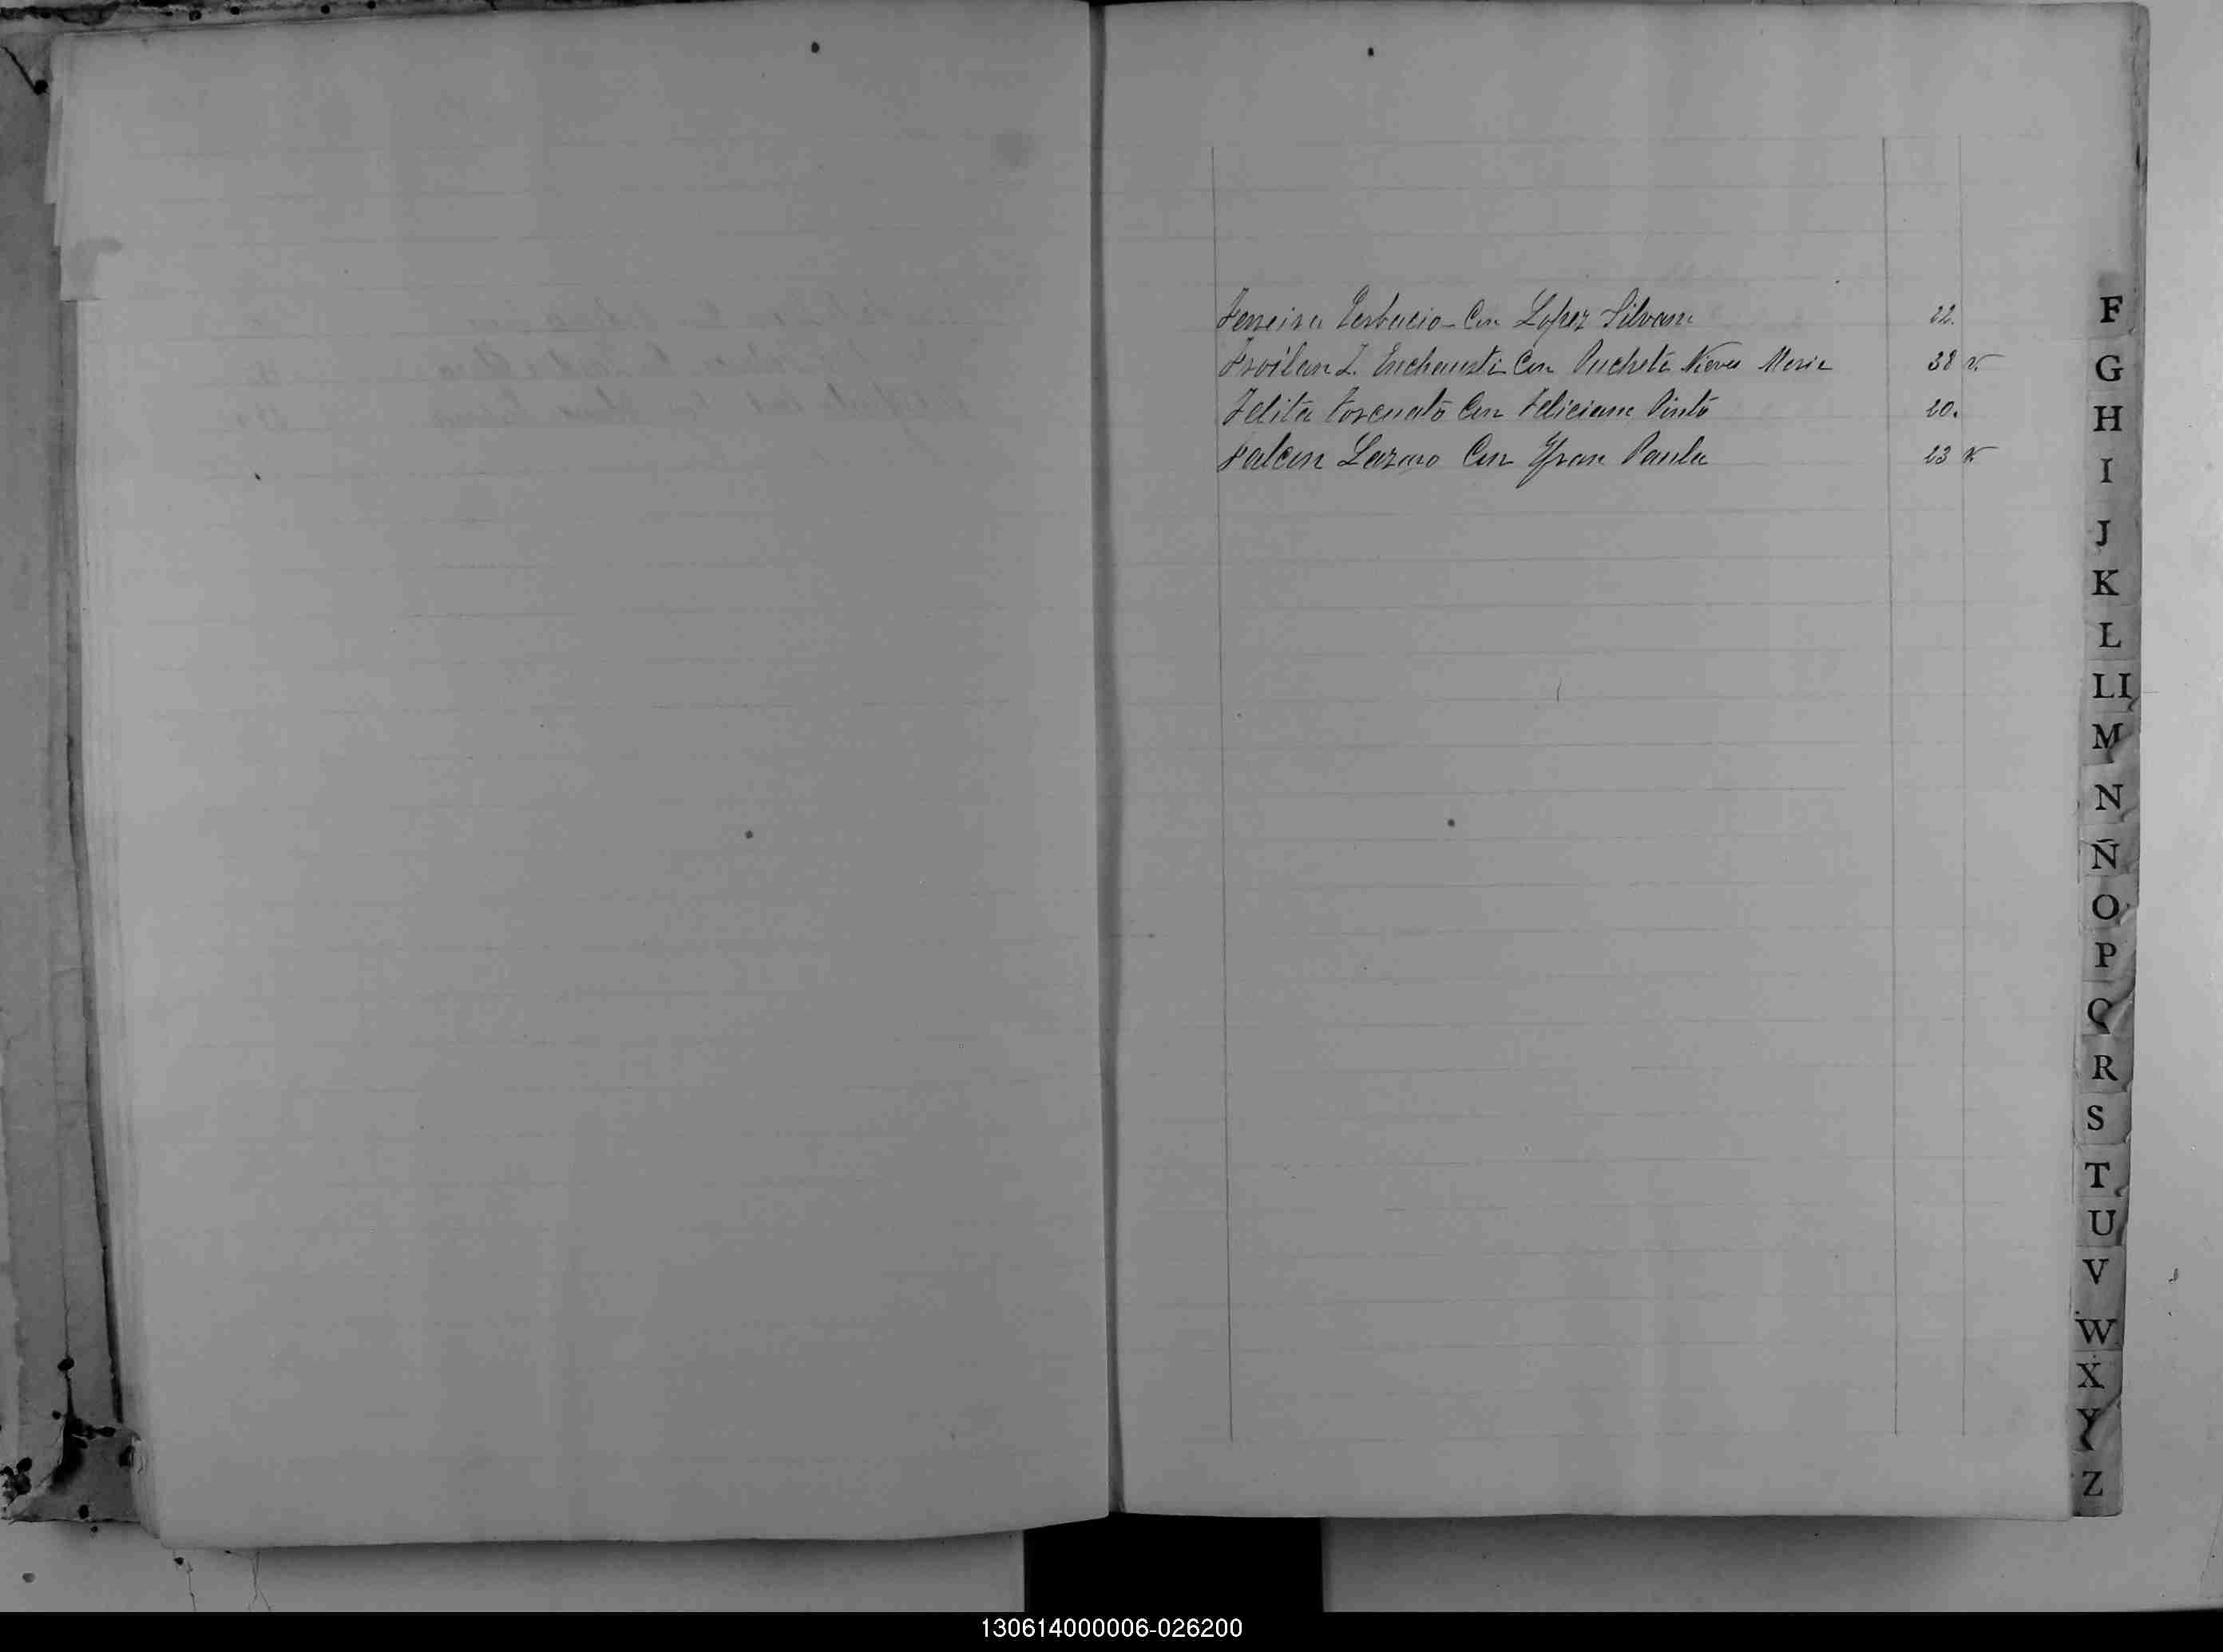 Ferreira Perbacio - Con Lopez Silvana 22.
Froilan L. Enchausti Con Pucheta Nieves Maria 38 v.
Felita Torcuato Con Feliciana Pinto 20.
Falcon Lazaro Con Yfran Paula 23 v
F
G
H
I
J
K
L
Ll
M
N
Ñ
O
P
Q
R
S
T
U
V
W
X
Y
Z
130614000006-026200